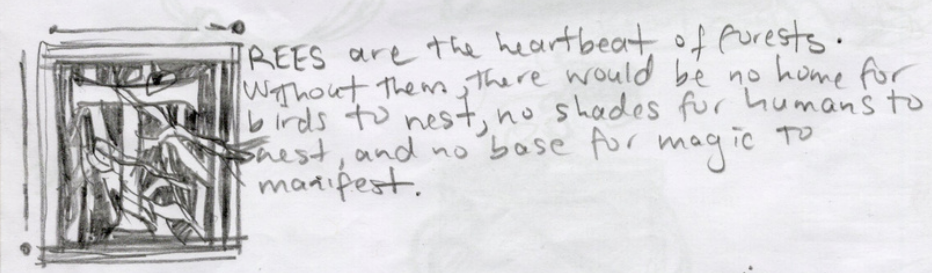 TREES are the heartbeat of forests.
Without them, there would be no home for
birds to nest, no shades for humans to
nest, and no base for magic to
manifest.